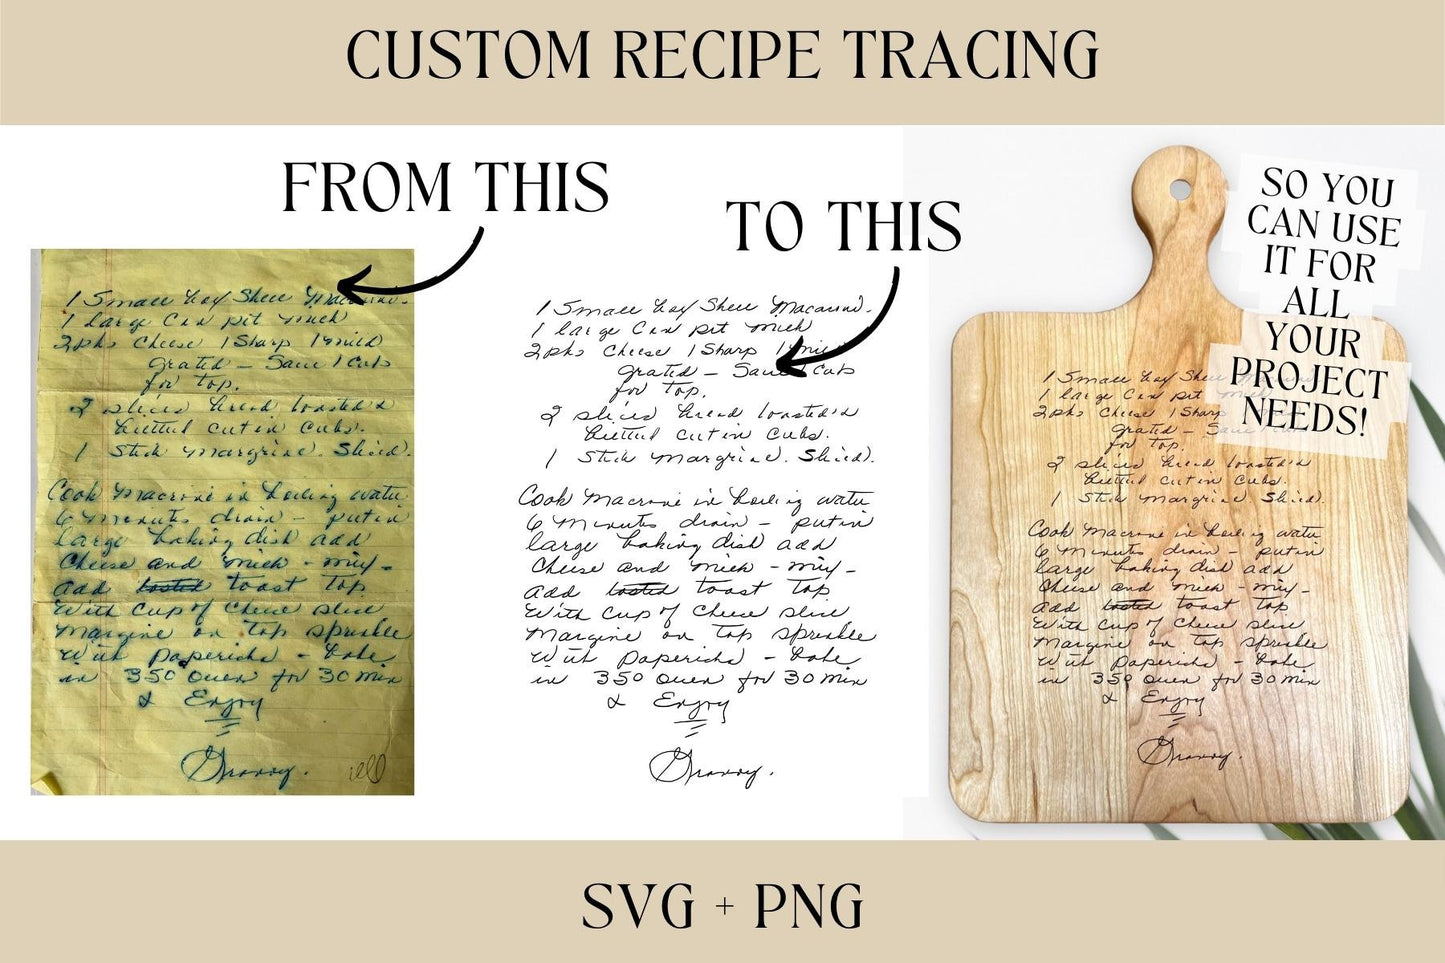 CUSTOM RECIPE TRACING
FROM THIS
1 Small box Shell Macaroni.
1 large Can pet milk
2 pks Cheese 1 Sharp 1 mild
grated – Save 1 Cub
for top.
2 slices bread toasted &
buttered cut in cubs.
1 Stick margrine. Sliced.
Cook Macroni in boiling water
6 Minutes drain – put in
large baking dish add
Cheese and milk – mix –
add toast top
With Cup of Cheese slice
Margine on top sprinkle
With papericka – bake
in 350 oven for 30 min
& Enjoy
Granny.
TO THIS
1 Small box Shell Macaroni.
1 large Can pet milk
2 pks Cheese 1 Sharp 1 mild
grated – Save 1 Cub
for top.
2 slices bread toasted &
buttered cut in cubs.
1 Stick margrine. Sliced.
Cook Macroni in boiling water
6 Minutes drain – put in
large baking dish add
Cheese and milk – mix –
add toast top
With Cup of Cheese slice
Margine on top sprinkle
With papericka – bake
in 350 oven for 30 min
& Enjoy
Granny.
SO YOU
CAN USE
IT FOR
ALL
YOUR
PROJECT
NEEDS!
1 Small box Shell
1 large Can pet
2 pks Cheese 1 Sharp
grated –
for top.
2 slices bread toasted &
buttered cut in cubs.
1 Stick margrine. Sliced.
Cook Macroni in boiling water
6 Minutes drain – put in
large baking dish add
Cheese and milk – mix –
add toast top
With Cup of Cheese slice
Margine on top sprinkle
With papericka – bake
in 350 oven for 30 min
& Enjoy
Granny.
SVG + PNG